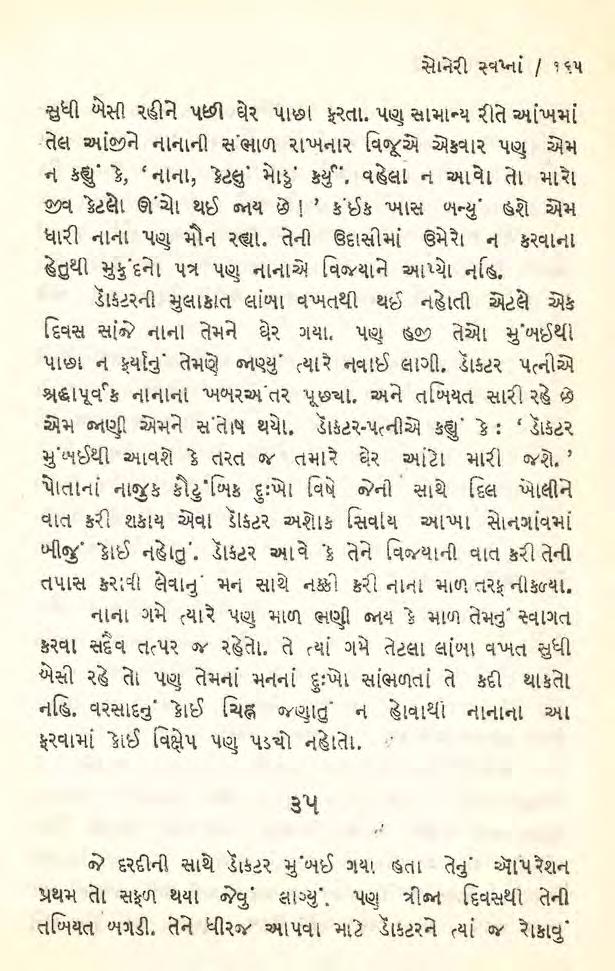 સોનેરી સ્વપ્નાં / ૧૬૫
સુધી બેસી રહીને પછી ઘેર પાછા ફરતા. પણ સામાન્ય રીતે આંખમાં
તેલ આંજીને નાનાની સંભાળ રાખનાર વિજૂએ એકવાર પણ એમ
ન કહ્યું કે, ‘નાના, કેટલું મોડું કર્યું. વહેલા ન આવો તો મારો
જીવ કેટલો ઊંચો થઈ જાય છે!’ કંઈક ખાસ બન્યું હશે એમ
ધારી નાના પણ મૌન રહ્યા. તેની ઉદાસીમાં ઉમેરો ન કરવાના
હેતુથી મુકુંદનો પત્ર પણ નાનાએ વિજયાને આપ્યો નહિ.
ડૉક્ટરની મુલાકાત લાંબા વખતથી થઈ નહોતી એટલે એક
દિવસ સાંજે નાના તેમને ઘેર ગયા. પણ હજી તેઓ મુંબઈથી
પાછા ન ફર્યાનું તેમણે જાણ્યું ત્યારે નવાઈ લાગી. ડૉક્ટર પત્નીએ
શ્રદ્ધાપૂર્વક નાનાના ખબરઅંતર પૂછ્યા. અને તબિયત સારી રહે છે
એમ જાણી એમને સંતોષ થયો. ડૉક્ટર-પત્નીએ કહ્યું કે: ‘ડૉક્ટર
મુંબઈથી આવશે કે તરત જ તમારે ઘેર આંટો મારી જશે.’
પોતાનાં નાજુક કૌટુંબિક દુઃખો વિષે જેની સાથે દિલ ખોલીને
વાત કરી શકાય એવા ડૉક્ટર અશોક સિવાય આખા સોનગાંવમાં
બીજું કોઈ નહોતું. ડૉક્ટર આવે કે તેને વિજયાની વાત કરી તેની
તપાસ કરાવી લેવાનું મન સાથે નક્કી કરી નાના માળ તરફ નીકળ્યા.
નાના ગમે ત્યારે પણ માળ ભણી જાય કે માળ તેમનું સ્વાગત
કરવા સદૈવ તત્પર જ રહેતો. તે ત્યાં ગમે તેટલા લાંબા વખત સુધી
બેસી રહે તો પણ તેમનાં મનનાં દુઃખો સાંભળતાં તે કદી થાકતો
નહિ. વરસાદનું કોઈ ચિહ્ન જણાતું ન હોવાથી નાનાના આ
ફરવામાં કોઈ વિક્ષેપ પણ પડ્યો નહોતો.
૩૫
જે દરદીની સાથે ડૉક્ટર મુંબઈ ગયા હતા તેનું ઑપરેશન
પ્રથમ તો સફળ થયા જેવું લાગ્યું. પણ ત્રીજા દિવસથી તેની
તબિયત બગડી. તેને ધીરજ આપવા માટે ડૉક્ટરને ત્યાં જ રોકાવું